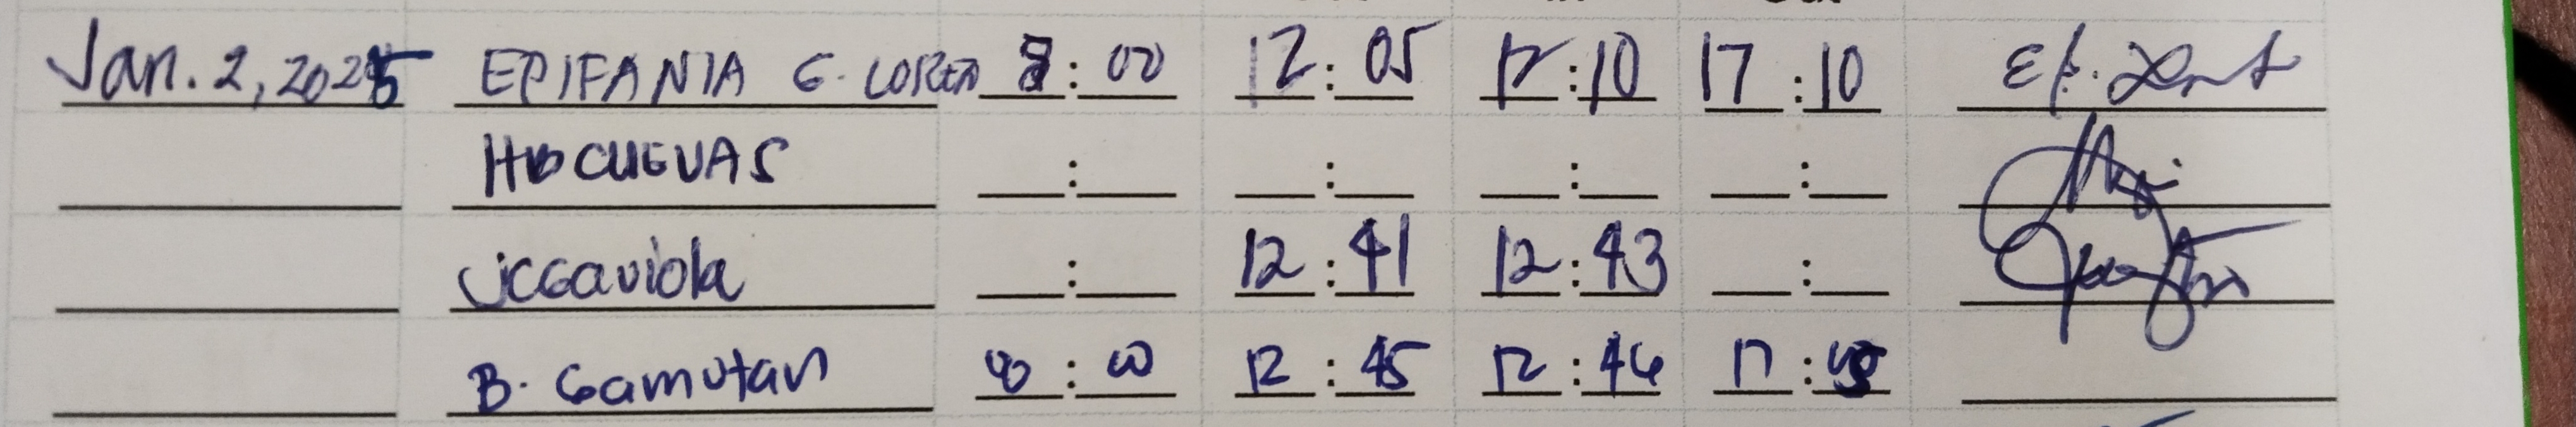 Jan. 2, 2025 EPIFANIA G. LOREN 8:00 12:05 12:10 17:10
HDCUEVAS __:__ __:__ __:__ __:__
JCGaviola __:__ 12:41 12:43 __:__
B. Gamutan 8:00 12:45 12:46 17: